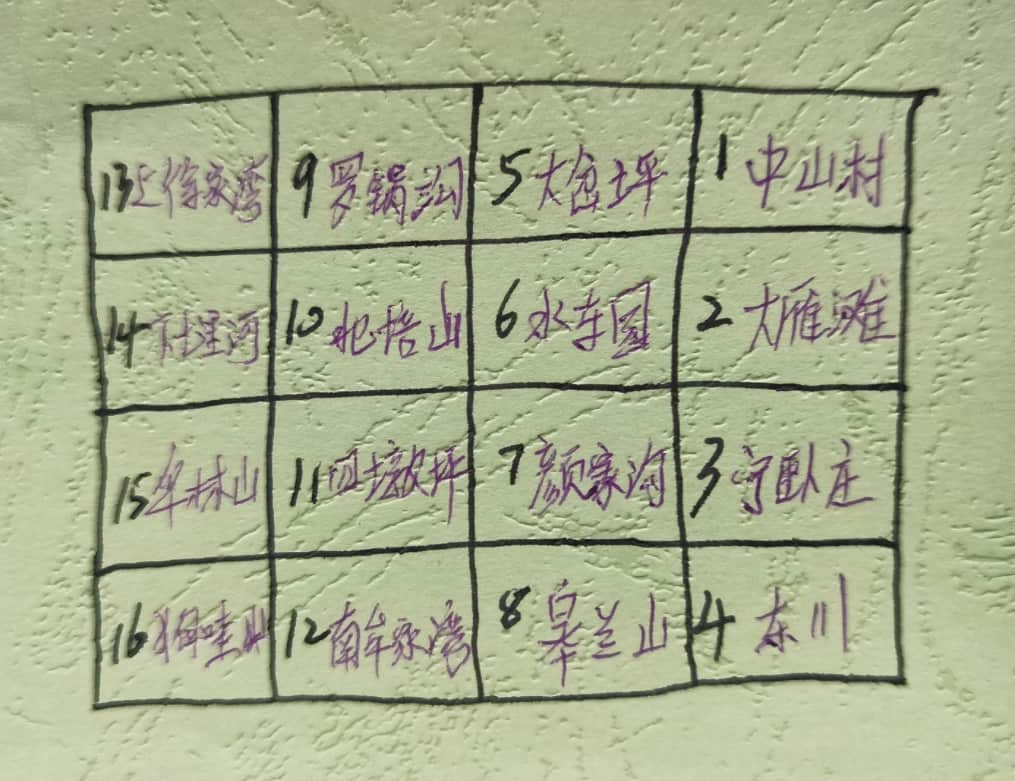 13上徐家湾 9罗锅沟 5大岔坪 1中山村
14 10北塔山 6水车园 2大雁滩
15牟林山 11四墩坪 7颜家沟 3宁卧庄
16狗哇山 12南牟家湾 8皋兰山 4东川